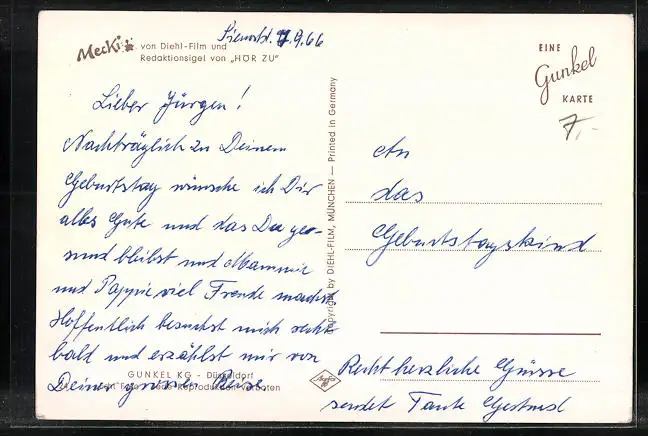 Mecki von Diehl-Film und
Redaktionsigel von „HÖR ZU"
9.66
EINE
Gunkel
KARTE
7,-
Lieber Jürgen!
Nachträglich zu Deinem
Geburtstag wünsche ich Dir
alles Gute und das Du ges-
und bleibst und Mammie
und Pappie viel Freude machst
Hoffentlich besuchst mich recht
bald und erzählst mir von
Deiner grossen Reise
An
das
Geburtstagskind
Recht herzliche Grüsse
sendet Tante Gertrud
Copyright by DIEHL-FILM, MÜNCHEN — Printed in Germany
GUNKEL KG - Düsseldorf
Foto Reproduktion verboten
Agfa